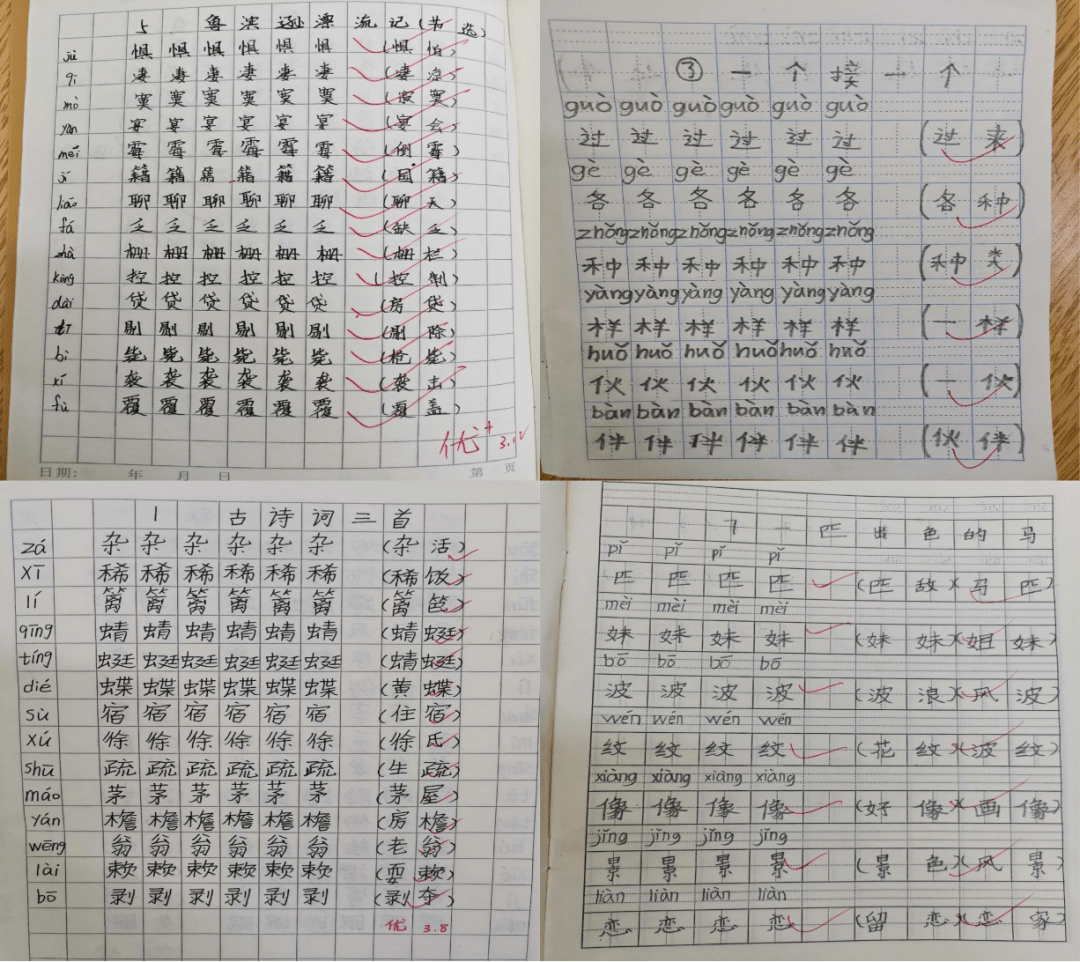 5 鲁滨逊漂流记(节选)
jù 惧 惧 惧 惧 惧 惧 (惧怕)
qī 凄 凄 凄 凄 凄 凄 (凄凉)
mò 寞 寞 寞 寞 寞 寞 (寂寞)
yàn 宴 宴 宴 宴 宴 宴 (宴会)
méi 霉 霉 霉 霉 霉 霉 (倒霉)
jí 籍 籍 籍 籍 籍 籍 (国籍)
liáo 聊 聊 聊 聊 聊 聊 (聊天)
fá 乏 乏 乏 乏 乏 乏 (缺乏)
zhà 栅 栅 栅 栅 栅 栅 (栅栏)
kòng 控 控 控 控 控 控 (控制)
dài 贷 贷 贷 贷 贷 贷 (房贷)
tī 剔 剔 剔 剔 剔 剔 (剔除)
bì 毙 毙 毙 毙 毙 毙 (枪毙)
xí 袭 袭 袭 袭 袭 袭 (袭击)
fù 覆 覆 覆 覆 覆 覆 (覆盖)
优+ 3.12
日期: 年 月 日 第 页
③ 一个接一个
guò guò guò guò guò guò
过 过 过 过 过 过 (过来)
gè gè gè gè gè gè
各 各 各 各 各 各 (各种)
zhǒng zhǒng zhǒng zhǒng zhǒng zhǒng
种 种 种 种 种 种 (种类)
yàng yàng yàng yàng yàng yàng
样 样 样 样 样 样 (一样)
huǒ huǒ huǒ huǒ huǒ huǒ
伙 伙 伙 伙 伙 伙 (一伙)
bàn bàn bàn bàn bàn bàn
伴 伴 伴 伴 伴 伴 (伙伴)
1 古诗词三首
zá 杂 杂 杂 杂 杂 杂 (杂活)
xī 稀 稀 稀 稀 稀 稀 (稀饭)
lí 篱 篱 篱 篱 篱 篱 (篱笆)
qīng 蜻 蜻 蜻 蜻 蜻 蜻 (蜻蜓)
tíng 蜓 蜓 蜓 蜓 蜓 蜓 (蜻蜓)
dié 蝶 蝶 蝶 蝶 蝶 蝶 (黄蝶)
sù 宿 宿 宿 宿 宿 宿 (住宿)
xú 徐 徐 徐 徐 徐 徐 (徐氏)
shū 疏 疏 疏 疏 疏 疏 (生疏)
máo 茅 茅 茅 茅 茅 茅 (茅屋)
yán 檐 檐 檐 檐 檐 檐 (房檐)
wēng 翁 翁 翁 翁 翁 翁 (老翁)
lài 赖 赖 赖 赖 赖 赖 (耍赖)
bō 剥 剥 剥 剥 剥 剥 (剥夺)
优 3.8
匹出色的马
pǐ pǐ pǐ pǐ
匹 匹 匹 匹 (匹敌)(马匹)
mèi mèi mèi mèi
妹 妹 妹 妹 (妹妹)(姐妹)
bō bō bō bō
波 波 波 波 (波浪)(风波)
wén wén wén wén
纹 纹 纹 纹 (花纹)(波纹)
xiàng xiàng xiàng xiàng
像 像 像 像 (好像)(画像)
jǐng jǐng jǐng jǐng
景 景 景 景 (景色)(风景)
liàn liàn liàn liàn
恋 恋 恋 恋 (留恋)(恋家)